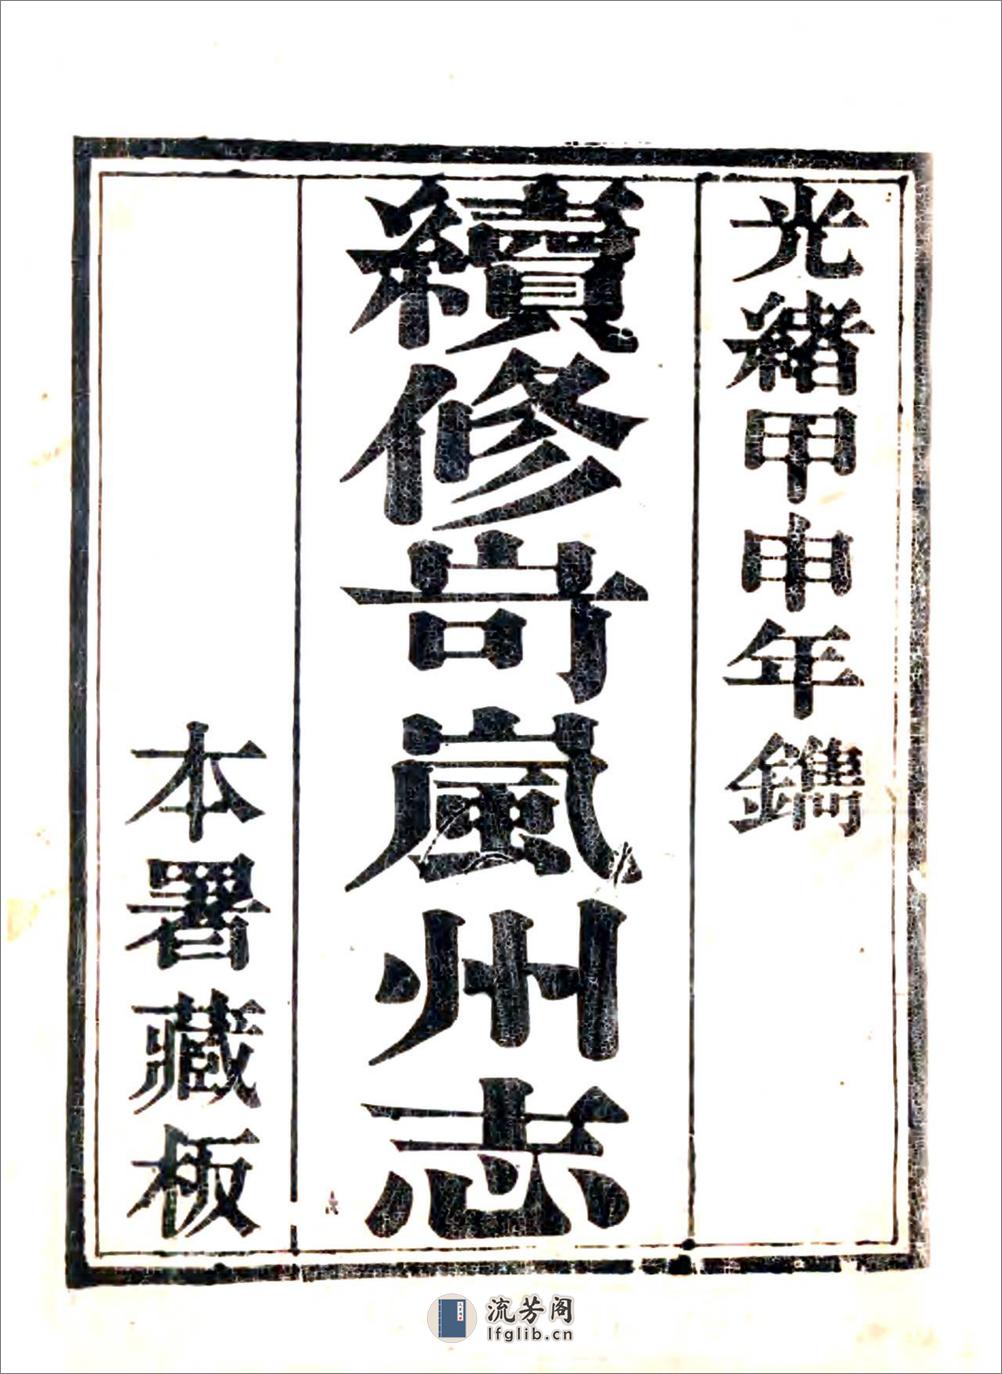 光緒甲申年鐫
續修岢嵐州志
本署藏板
流芳阁
lfglib.cn